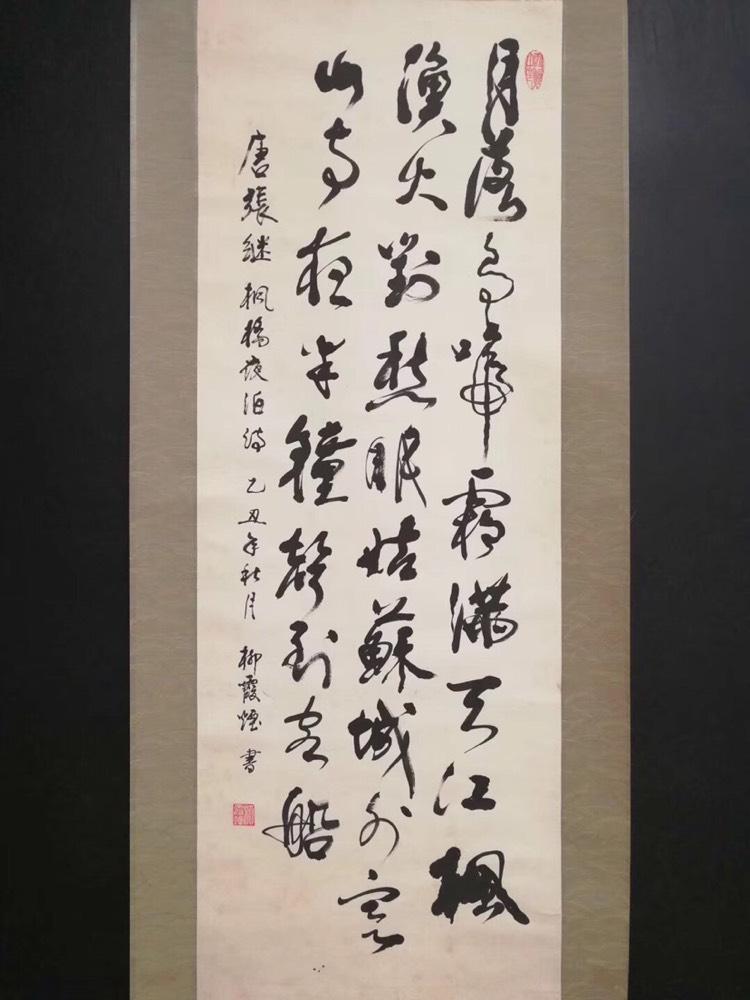 月落烏啼霜滿天江楓
漁火對愁眠姑蘇城外寒
山寺夜半鐘聲到客船
唐張継楓橋夜泊詩 乙丑年秋月 柳霞煙書